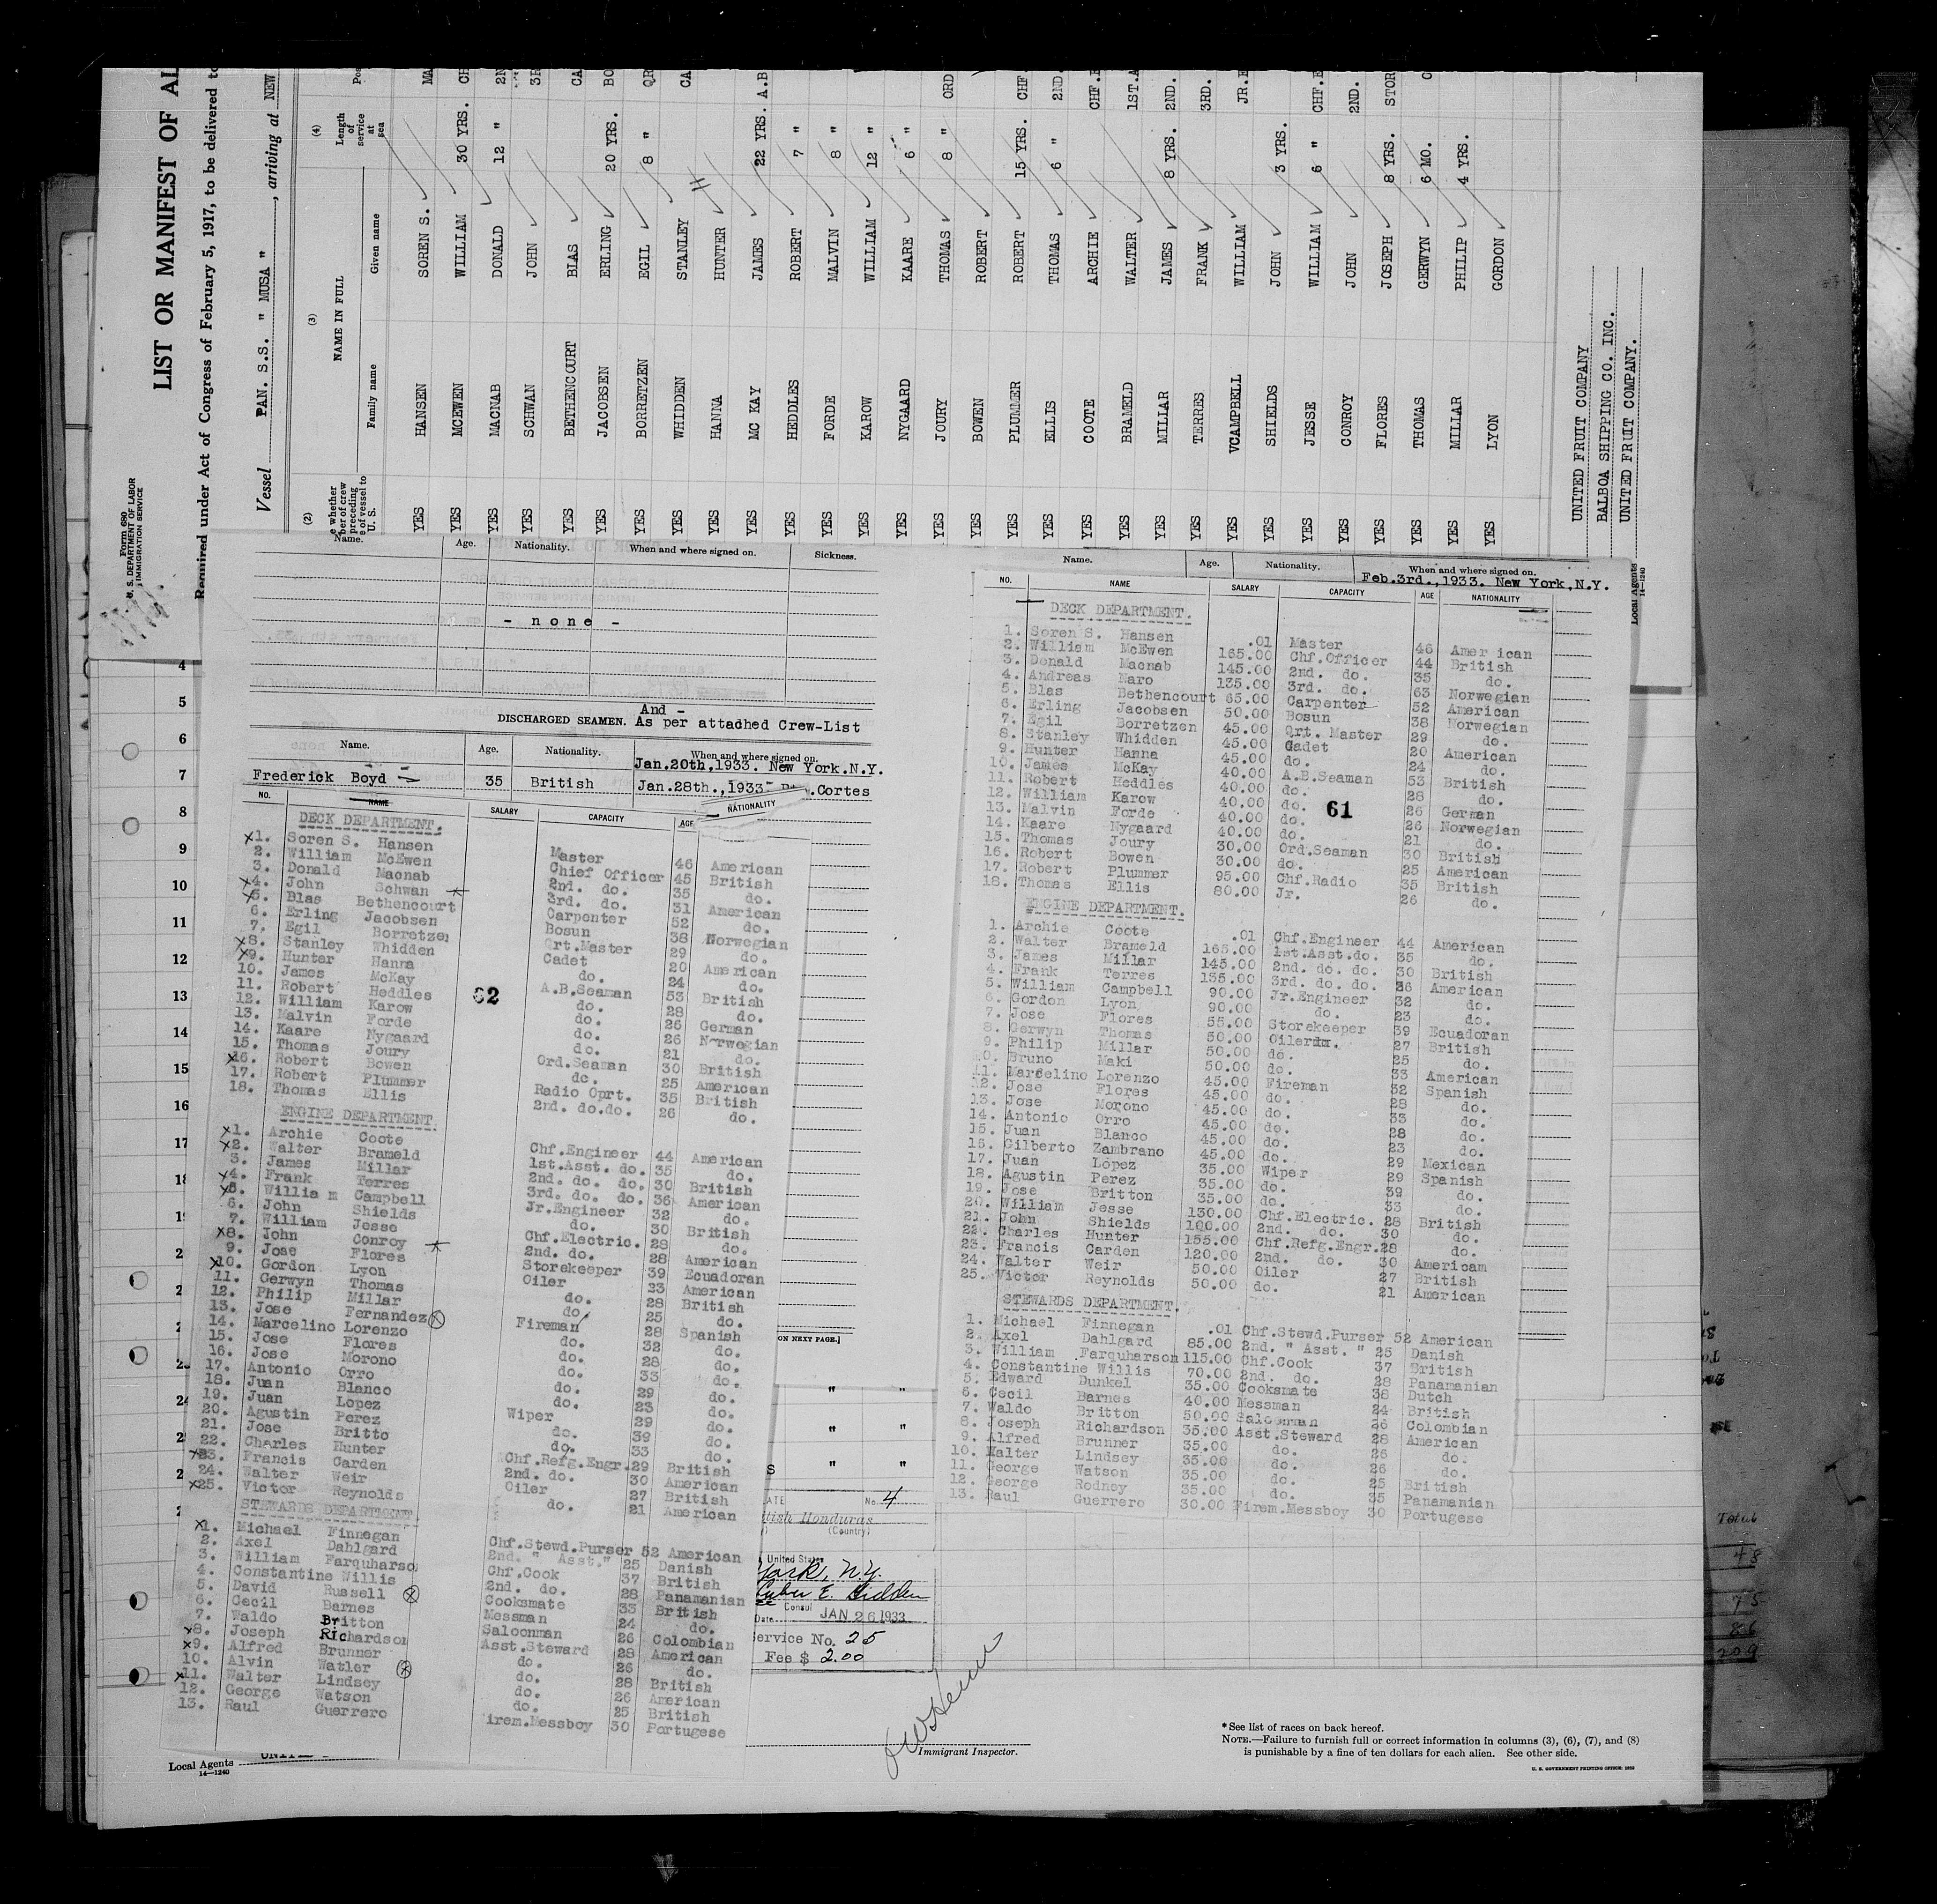 LIST OR MANIFEST OF AL
Required under Act of Congress of February 5, 1917, to be delivered to
Vessel PAN. S.S. " MUSA ", arriving at NEW
Form 680
U. S. DEPARTMENT OF LABOR
IMMIGRATION SERVICE
(2) (3) (4)
NAME IN FULL
Family name Given name
Length of service at sea
YES HANSEN SOREN S. MA
YES MCEWEN WILLIAM 30 YRS. CH
YES MACNAB DONALD 12 " 2N
YES SCHWAN JOHN 3R
YES BETHENCOURT BLAS CA
YES JACOBSEN ERLING 20 YRS. BO
YES BORRETZEN EGIL 8 " QR
YES WHIDDEN STANLEY CA
YES HANNA HUNTER
YES MC KAY JAMES 22 YRS. A.B
YES HEDDLES ROBERT 7 "
YES FORDE MALVIN 8 "
YES KAROW WILLIAM 12 "
YES NYGAARD KAARE 6 "
YES JOURY THOMAS 8 " ORD
YES BOWEN ROBERT
YES PLUMMER ROBERT 15 YRS. CHF
YES ELLIS THOMAS 6 " 2ND.
YES COOTE ARCHIE CHF.E
YES BRAMELD WALTER 1ST.A
YES MILLAR JAMES 8 YRS. 2ND.
YES TERRES FRANK 3RD.
YES VCAMPBELL WILLIAM JR.E
YES SHIELDS JOHN 3 YRS.
YES JESSE WILLIAM 6 " CHF.E
YES CONROY JOHN 2ND.
YES FLORES JOSEPH 8 YRS. STOR
YES THOMAS GERWYN 6 MO. O
YES MILLAR PHILIP 4 YRS.
YES LYON GORDON
UNITED FRUIT COMPANY
BALBOA SHIPPING CO. INC.
UNITED FRUIT COMPANY.
Local Agents
14—1240
Name. Age. Nationality. When and where signed on. Sickness.
- none -
And -
DISCHARGED SEAMEN. As per attadhed Crew-List
Name. Age. Nationality. When and where signed on.
Jan.20th,1933. New York.N.Y.
Frederick Boyd 35 British Jan.28th.,1933 .Cortes
NO. NAME SALARY CAPACITY AGE NATIONALITY
DECK DEPARTMENT.
1. Soren S. Hansen Master 46 American
2. William McEwen Chief Officer 45 British
3. Donald Macnab 2nd. do. 35 do.
4. John Schwan 3rd. do. 31 American
5. Blas Bethencourt Carpenter 52 do.
6. Erling Jacobsen Bosun 38 Norwegian
7. Egil Borretzen Qrt.Master 29 do.
8. Stanley Whidden Cadet 20 American
9. Hunter Hanna do. 24 do.
10. James McKay A.B.Seaman 53 British
11. Robert Heddles do. 28 do.
12. William Karow do. 26 German
13. Malvin Forde do. 26 Norwegian
14. Kaare Nygaard do. 21 do.
15. Thomas Joury Ord.Seaman 30 British
16. Robert Bowen do. 25 American
17. Robert Plummer Radio Oprt. 35 British
18. Thomas Ellis 2nd. do.do. 26 do.
62
ENGINE DEPARTMENT.
1. Archie Coote Chf.Engineer 44 American
2. Walter Brameld 1st.Asst. do. 35 do.
3. James Millar 2nd. do. do. 30 British
4. Frank Terres 3rd. do. do. 36 American
5. William Campbell Jr.Engineer 32 do.
6. John Shields do. 30 British
7. William Jesse Chf.Electric. 28 do.
8. John Conroy 2nd. do. 28 American
9. Jose Flores Storekeeper 39 Ecuadoran
10. Gordon Lyon Oiler 23 American
11. Gerwyn Thomas do. 28 British
12. Philip Millar do. 25 do.
13. Jose Fernandez Fireman 28 Spanish
14. Marcelino Lorenzo do. 32 do.
15. Jose Flores do. 28 do.
16. Jose Morono do. 33 do.
17. Antonio Orro do. 29 do.
18. Juan Blanco do. 23 do.
19. Juan Lopez Wiper 29 do.
20. Agustin Perez do. 39 do.
21. Jose Britto do. 33 do.
22. Charles Hunter Chf.Refg.Engr. 29 British
23. Francis Carden 2nd. do. 30 American
24. Walter Weir Oiler 27 British
25. Victor Reynolds do. 21 American
STEWARDS DEPARTMENT
1. Michael Finnegan Chf.Stewd.Purser 52 American
2. Axel Dahlgard 2nd. " Asst." 25 Danish
3. William Farquharso Chf.Cook 37 British
4. Constantine Willis 2nd. do. 28 Panamanian
5. David Russell Cooksmate 33 British
6. Cecil Barnes Messman 24 do.
7. Waldo Britton Saloonman 26 Colombian
8. Joseph Richardson Asst.Steward 28 American
9. Alfred Brunner do. 26 do.
10. Alvin Watler do. 28 British
11. Walter Lindsey do. 26 American
12. George Watson do. 25 British
13. Raul Guerrero irem.Messboy 30 Portugese
Name. Age. Nationality. When and where signed on.
Feb.3rd.,1933. New York,N.Y.
NO. NAME SALARY CAPACITY AGE NATIONALITY
DECK DEPARTMENT.
1. Soren S. Hansen .01 Master 46 Amer ican
2. William McEwen 165.00 Chf.Officer 44 British
3. Donald Macnab 145.00 2nd. do. 35 do.
4. Andreas Maro 135.00 3rd. do. 63 Norwegian
5. Blas Bethencourt 65.00 Carpenter 52 American
6. Erling Jacobsen 50.00 Bosun 38 Norwegian
7. Egil Borretzen 45.00 Qrt. Master 29 do.
8. Stanley Whidden 45.00 Cadet 20 American
9. Hunter Hanna 45.00 do. 24 do.
10. James McKay 40.00 A.B.Seaman 53 British
11. Robert Heddles 40.00 do. 28 do.
12. William Karow 40.00 do. 26 German
13. Malvin Forde 40.00 do. 26 Norwegian
14. Kaare Nygaard 40.00 do. 21 do.
15. Thomas Joury 30.00 Ord.Seaman 30 British
16. Robert Bowen 30.00 do. 25 American
17. Robert Plummer 95.00 Chf.Radio 35 British
18. Thomas Ellis 80.00 Jr. 26 do.
61
ENGINE DEPARTMENT.
1. Archie Coote .01 Chf.Engineer 44 American
2. Walter Brameld 165.00 1st.Asst.do. 35 do.
3. James Millar 145.00 2nd. do. do. 30 British
4. Frank Terres 135.00 3rd. do. do. 36 American
5. William Campbell 90.00 Jr.Engineer 32 do.
6. Gordon Lyon 90.00 do. 23 do.
7. Jose Flores 55.00 Storekeeper 39 Ecuadoran
8. Gerwyn Thomas 50.00 Oiler 27 British
9. Philip Millar 50.00 do. 25 do.
10. Bruno Maki 50.00 do. 33 American
11. Marcelino Lorenzo 45.00 Fireman 32 Spanish
12. Jose Flores 45.00 do. 28 do.
13. Jose Morono 45.00 do. 33 do.
14. Antonio Orro 45.00 do. 28 do.
15. Juan Blanco 45.00 do. 23 do.
16. Gilberto Zambrano 45.00 do. 29 Mexican
17. Juan Lopez 35.00 Wiper 29 Spanish
18. Agustin Perez 35.00 do. 39 do.
19. Jose Britton 35.00 do. 33 do.
20. William Jesse 130.00 Chf.Electric. 28 British
21. John Shields 100.00 2nd. do. 30 do.
22. Charles Hunter 155.00 Chf.Refg.Engr.28 do.
23. Francis Carden 120.00 2nd. do. 30 American
24. Walter Weir 50.00 Oiler 27 British
25. Victor Reynolds 50.00 do. 21 American
STEWARDS DEPARTMENT.
1. Michael Finnegan .01 Chf.Stewd.Purser 52 American
2. Axel Dahlgard 85.00 2nd. " Asst. " 25 Danish
3. William Farquharson 115.00 Chf.Cook 37 British
4. Constantine Willis 70.00 2nd. do. 28 Panamanian
5. Edward Dunkel 35.00 Cooksmate 38 Dutch
6. Cecil Barnes 40.00 Messman 24 British
7. Waldo Britton 50.00 Saloonman 26 Colombian
8. Joseph Richardson 35.00 Asst.Steward 28 American
9. Alfred Brunner 35.00 do. 26 do.
10. Walter Lindsey 35.00 do. 26 do.
11. George Watson 35.00 do. 25 British
12. George Rodney 35.00 do. 35 Panamanian
13. Raul Guerrero 30.00 Firem.Messboy 30 Portugese
4
5
6
7
8
9
10
11
12
13
14
15
16
17
24
ON NEXT PAGE.]
No. 4
tish Honduras
(Country)
United States
York, N.Y.
Consul
Date JAN 26 1933
ervice No. 25
Fee $ 2.00
Immigrant Inspector.
Local Agents
14—1240
*See list of races on back hereof.
NOTE.—Failure to furnish full or correct information in columns (3), (6), (7), and (8)
is punishable by a fine of ten dollars for each alien. See other side.
U. S. GOVERNMENT PRINTING OFFICE: 1932
Total
48
75
86
209